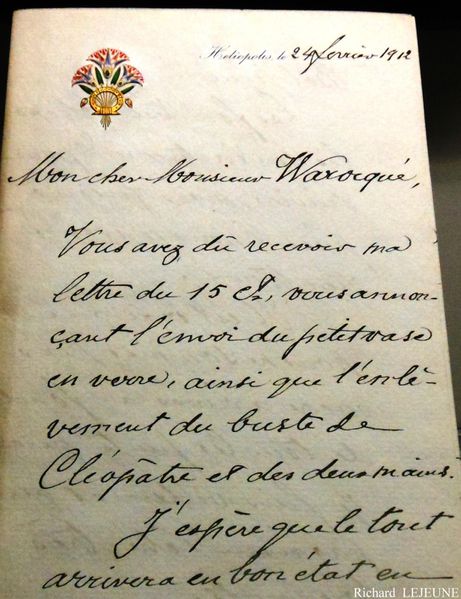 Heliopolis le 24 février 1912
Mon cher Monsieur Warocqué,
Vous avez dû recevoir ma
lettre du 15 Ct, vous annon-
çant l'envoi du petit vase
en verre, ainsi que l'enlè-
vement du buste de
Cléopâtre et des deux mains.
J'espère que le tout
arrivera en bon état en
Richard LEJEUNE